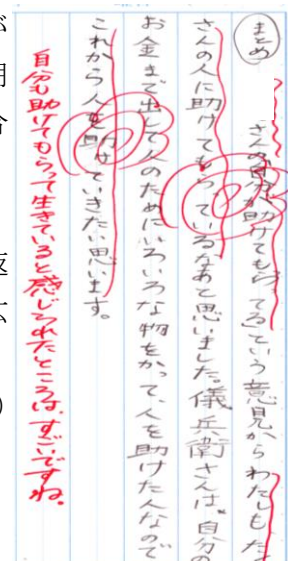 まとめ
さんの「自分が助けてもらってる」という意見からわたしもた
さんの人に助けてもらっているなあと思いました。儀兵衛さんは、自分の
お金まで出して人のためにいろいろな物をかって、人を助けたんなので
これから人を助けていきたい思います。
自分も助けてもらって生きていると感じられたところは、すごいですね。